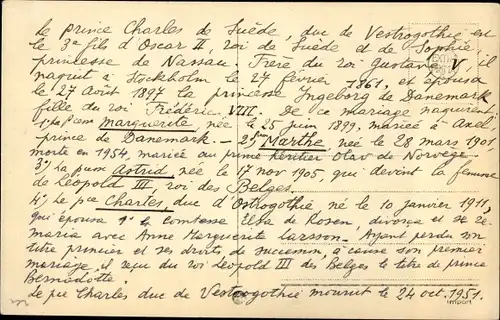 Le prince Charles de Suède, duc de Vestrogothie est
le 3e fils d'Oscar II, roi de Suède et de Sophie,
princesse de Nassau. Frère du roi Gustave V, il
naquit à Stockholm le 27 février 1861, et épousa
le 27 Août 1897 la princesse Ingeborg de Danemark
fille du roi Frédéric VIII. De ce mariage naquirent
1º la Psse Marguerite née le 25 juin 1899, mariée à Axel
prince de Danemark. — 2º Marthe née le 28 mars 1901
morte en 1954, mariée au prince héritier Olav de Norvège
3º La psse Astrid née le 17 nov 1905, qui devint la femme
de Léopold III, roi des Belges.
4º Le pce Charles, duc d'Ostrogothie né le 10 janvier 1911,
qui épousa 1º la Comtesse Elsa de Rosen, divorça et se re
maria avec Anne Marguerite Larsson. Ayant perdu son
titre princier et ses droits de succession, à cause son premier
mariage, il reçut du roi Léopold III des Belges le titre de prince
Bernadotte.
Le pce Charles duc de Vestrogothie mourut le 24 oct. 1951.
import